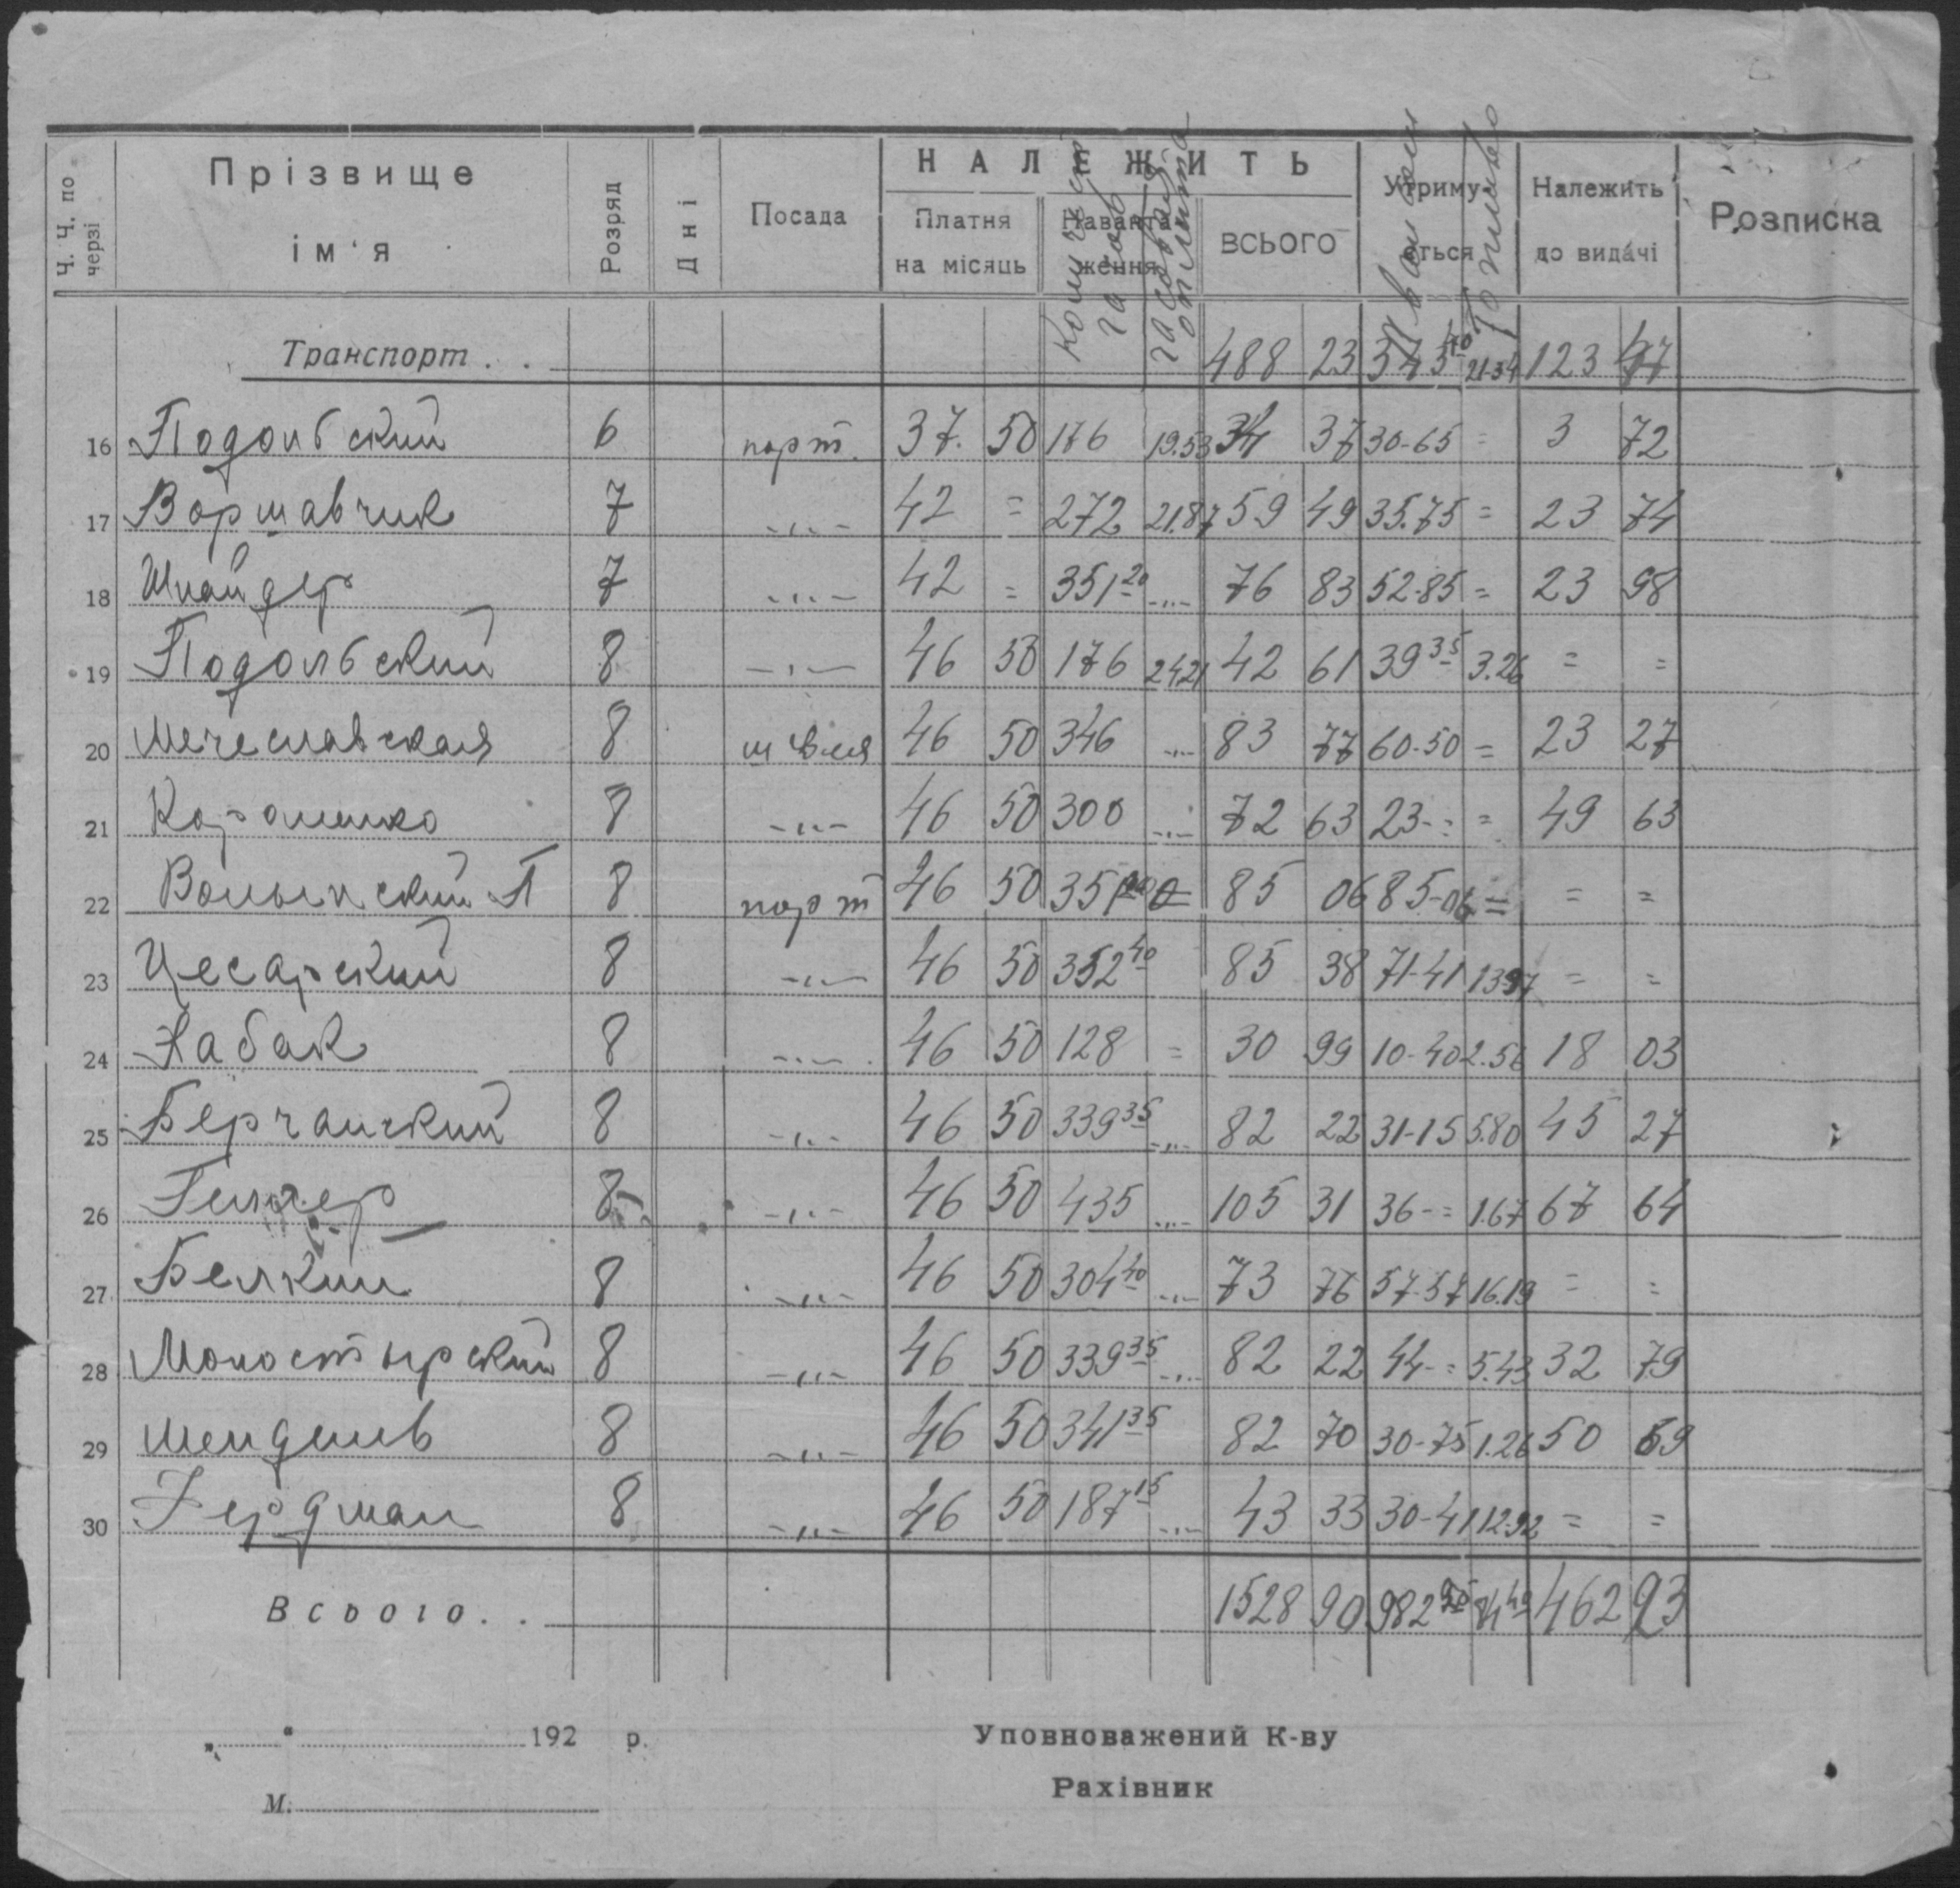 Ч. Ч. по черзі
Прізвище ім'я
Розряд
Дні
Посада
НАЛЕЖИТЬ
Платня на місяць
Наванта-ження
ВСЬОГО
Утриму-ється
Належить до видачі
Розписка
Транспорт . . 488 23 343 40 21 34 123 47
16 Подольский 6 порт. 37. 50 176 19.53 34 37 30-65 = 3 72
17 Воршавчик 7 -"- 42 = 272 21.87 59 49 35.75 = 23 74
18 Шнайдер 7 -"- 42 = 351 20 -"- 76 83 52-85 = 23 98
19 Подольский 8 -"- 46 50 176 24 21 42 61 39 35 3.26 = =
20 Мечеславская 8 швея 46 50 346 -"- 83 77 60-50 = 23 27
21 8 -"- 46 50 300 -"- 72 63 23-= = 49 63
22 Волынский П 8 порт 46 50 351 85 06 85-06 = = =
23 Цесарский 8 -"- 46 50 352 40 85 38 71-41 13 97 = =
24 Хабак 8 -"- 46 50 128 = 30 99 10-40 2.56 18 03
25 Берчанский 8 -"- 46 50 339 35 -"- 82 22 31-15 5.80 45 27
26 8 -"- 46 50 435 -"- 105 31 36-= 1.67 67 64
27 Белкин 8 -"- 46 50 304 40 -"- 73 76 57-57 16.19 = =
28 Моностырский 8 -"- 46 50 339 35 -"- 82 22 44-= 5.43 32 79
29 Мендель 8 -"- 46 50 341 35 82 70 30-75 1.26 50 69
30 Гердман 8 -"- 46 50 187 15 -"- 43 33 30-41 12.92 = =
Всього . . 1528 90 982 84 49 462 93
„ " 192 р.
Уповноважений К-ву
М.
Рахівник